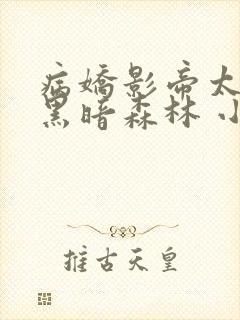 病嬌影帝太
黑暗森林 小
推古天皇